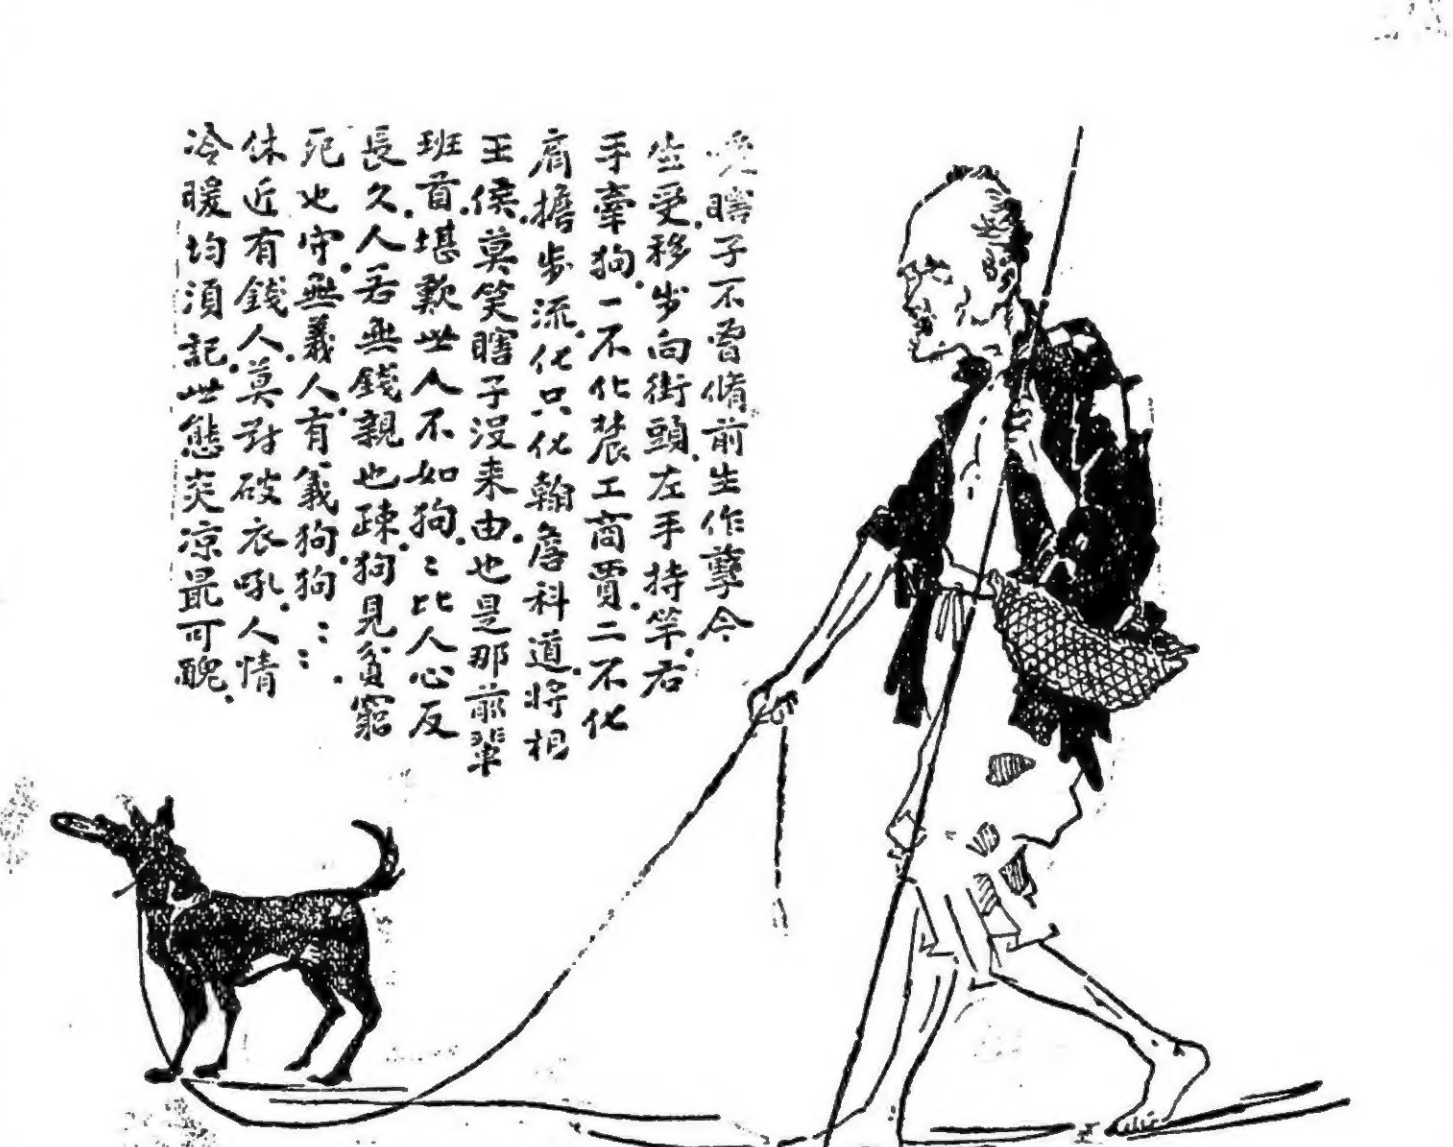 瞎子不曾脩前生作孽今
生受.移步向街頭.左手持竿.右
手牽狗.一不化農工商賈.二不化
肩擔步流.化只化翰詹科道.將相
王侯.莫笑瞎子沒来由.也是那前輩
班首.堪歎世人不如狗.:比人心反
長久.人若無錢親也疎.狗見貧窮
死也守.無義人.有義狗.狗::.
休近有錢人.莫對破衣吼.人情
冷暖均須記.世態炎凉最可醜.